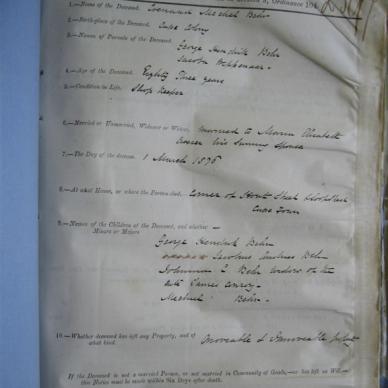 1.—Name of the Deceased. Michiel Behr
2.—Birth-place of the Deceased. Cape Colony
3.—Names of Parents of the Deceased.
George Hendrik Behr
Jacoba
4.—Age of the Deceased. Eighty Three years
5.—Condition in Life. Shop Keeper
6.—Married or Unmarried, Widower or Widow, married to Maria Elizabeth
his surviving spouse
7.—The Day of the decease. 1 March 1876
8.—At what House, or where the Person died. corner of Street
Cape Town
9.—Names of the Children of the Deceased, and whether
Minors or Majors
George Hendrik Behr
Jacobus Andries Behr
Johanna Behr widow of the
late James
Michiel Behr
10.—Whether deceased has left any Property, and of
what kind. Moveable & Immoveable
If the Deceased is not a married Person, or not married in Community of Goods,—or has left no Will,—
this Notice must be made within Six Days after death.